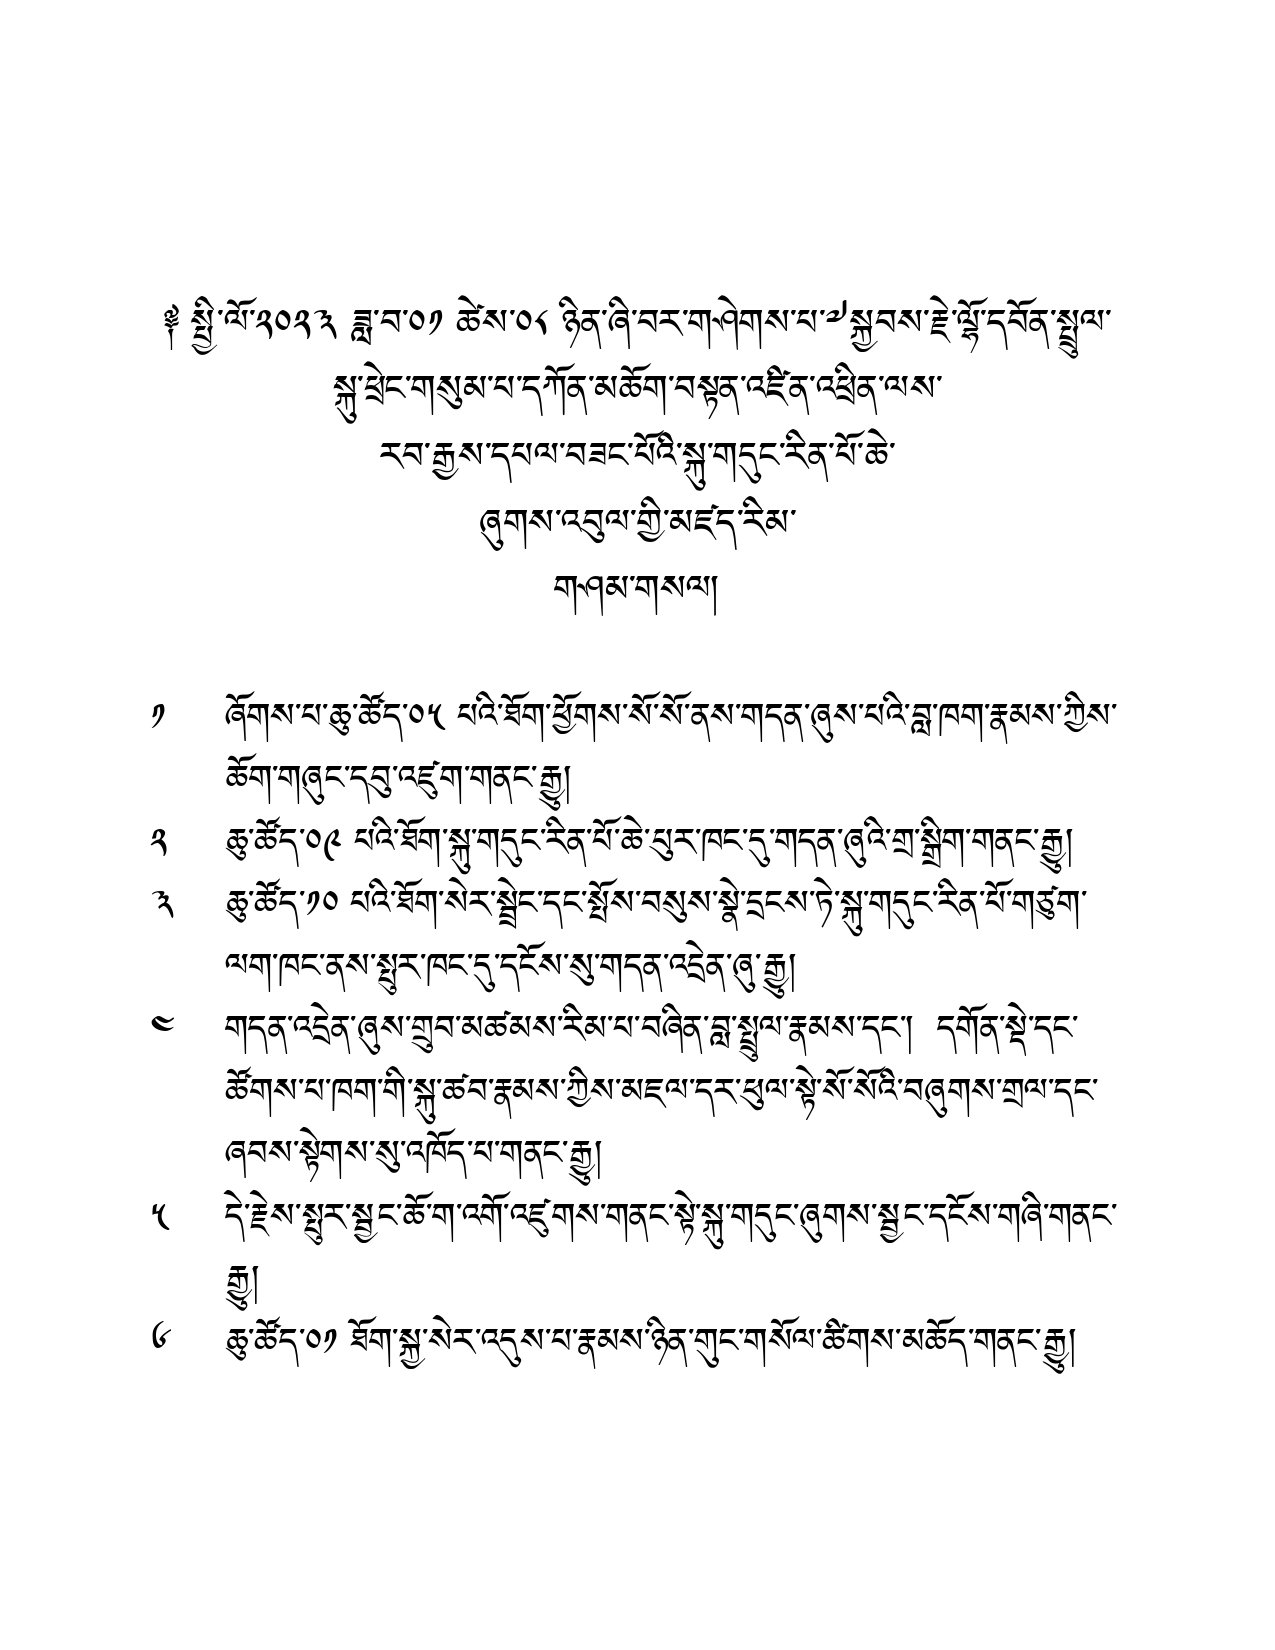 ༈ སྤྱི་ལོ་༢༠༢༣ ཟླ་བ་༠༡ ཚེས་༠༨ ཉིན་ཞི་བར་གཤེགས་པ་༧སྐྱབས་རྗེ་ལྷོ་དབོན་སྤྲུལ་
སྐུ་ཕྲེང་གསུམ་པ་དཀོན་མཆོག་བསྟན་འཛིན་འཕྲིན་ལས་
རབ་རྒྱས་དཔལ་བཟང་པོའི་སྐུ་གདུང་རིན་པོ་ཆེ་
ཞུགས་འབུལ་གྱི་མཛད་རིམ་
གཤམ་གསལ།
༡ ཞོགས་པ་ཆུ་ཚོད་༠༥ པའི་ཐོག་ཕྱོགས་སོ་སོ་ནས་གདན་ཞུས་པའི་བླ་ཁག་རྣམས་ཀྱིས་
ཆོག་གཞུང་དབུ་འཛུག་གནང་རྒྱུ།
༢ ཆུ་ཚོད་༠༩ པའི་ཐོག་སྐུ་གདུང་རིན་པོ་ཆེ་པུར་ཁང་དུ་གདན་ཞུའི་གྲ་སྒྲིག་གནང་རྒྱུ།
༣ ཆུ་ཚོད་༡༠ པའི་ཐོག་སེར་སྦྲེང་དང་སྤོས་བསུས་སྣེ་དྲངས་ཏེ་སྐུ་གདུང་རིན་པོ་གཙུག་
ལག་ཁང་ནས་སྤུར་ཁང་དུ་དངོས་སུ་གདན་འདྲེན་ཞུ་རྒྱུ།
༤ གདན་འདྲེན་ཞུས་གྲུབ་མཚམས་རིམ་པ་བཞིན་བླ་སྤྲུལ་རྣམས་དང་། དགོན་སྡེ་དང་
ཚོགས་པ་ཁག་གི་སྐུ་ཚབ་རྣམས་ཀྱིས་མཇལ་དར་ཕུལ་སྟེ་སོ་སོའི་བཞུགས་གྲལ་དང་
ཞབས་སྟེགས་སུ་འཁོད་པ་གནང་རྒྱུ།
༥ དེ་རྗེས་སྤུར་སྦྱང་ཆོ་ག་འགོ་འཛུགས་གནང་སྟེ་སྐུ་གདུང་ཞུགས་སྦྱང་དངོས་གཞི་གནང་
རྒྱུ།
༦ ཆུ་ཚོད་༠༡ ཐོག་སྐྱ་སེར་འདུས་པ་རྣམས་ཉིན་གུང་གསོལ་ཚིགས་མཆོད་གནང་རྒྱུ།